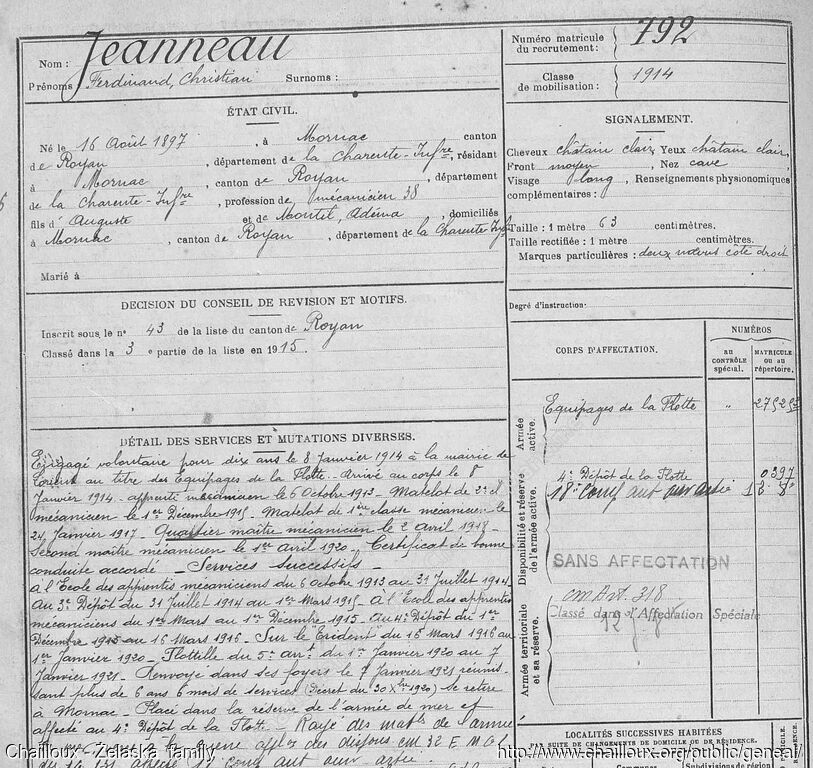 Nom : Jeanneau
Prénoms : Ferdinand, Christian Surnoms :
Numéro matricule du recrutement : 792
Classe de mobilisation : 1914
ÉTAT CIVIL.
Né le 16 Août 1897, à Mornac canton
de Royan, département de la Charente-Infre, résidant
à Mornac, canton de Royan, département
de la Charente-Infre, profession de mécanicien 38
fils d'Auguste et de Montil, Adéma, domiciliés
à Mornac, canton de Royan, département de la Charente Infre
Marié à
DECISION DU CONSEIL DE REVISION ET MOTIFS.
Inscrit sous le n° 43 de la liste du canton de Royan
Classé dans la 3 e partie de la liste en 1915.
SIGNALEMENT.
Cheveux châtain clair, Yeux châtain clair,
Front moyen, Nez cave
Visage long, Renseignements physionomiques
complémentaires :
Taille : 1 mètre 63 centimètres.
Taille rectifiée : 1 mètre centimètres.
Marques particulières : deux côté droit
Degré d'instruction :
DÉTAIL DES SERVICES ET MUTATIONS DIVERSES.
Engagé volontaire pour dix ans le 8 Janvier 1914 à la mairie de
Lorient au titre des Equipages de la Flotte. Arrivé au corps le 8
Janvier 1914 - apprenti mécanicien le 6 Octobre 1913 - Matelot de 2e cl
mécanicien le 1er Décembre 1915 - Matelot de 1ère classe mécanicien le
24 Janvier 1917 - Quartier maître mécanicien le 2 Avril 1918 -
Second maître mécanicien le 1er Avril 1920 - Certificat de bonne
conduite accordé - Services successifs -
à l'Ecole des apprentis mécaniciens du 6 Octobre 1913 au 31 Juillet 1914.
Au 3e Dépôt du 31 Juillet 1914 au 1er Mars 1915 - à l'Ecole des apprentis
mécaniciens du 1er Mars au 1er Décembre 1915 - Au 4e Dépôt du 1er
Décembre 1915 au 16 Mars 1916 - Sur le Trident du 16 Mars 1916 au
1er Janvier 1920 - Flottille du 5e arrt du 1er Janvier 1920 au 7
Janvier 1921 - Renvoyé dans ses foyers le 7 Janvier 1921 réunis-
sant plus de 6 ans 6 mois de services (Décret du 30 Xbre 1920) se retire
à Mornac - Placé dans la réserve de l'armée de mer et
affecté au 4e Dépôt de la Flotte - Rayé des de l'armée
CORPS D'AFFECTATION.
NUMÉROS
AU CONTRÔLE SPÉCIAL.
MATRICULE OU AU RÉPERTOIRE.
Armée active.
Equipages de la Flotte "
Disponibilité et réserve de l'armée active.
4e Dépôt de la Flotte 0397
SANS AFFECTATION
Armée territoriale et sa réserve.
Art. 318
Classé dans l'Affection Spéciale
LOCALITÉS SUCCESSIVES HABITÉES
PAR SUITE DE CHANGEMENTS DE DOMICILE OU DE RÉSIDENCE.
Subdivisions de région
Chailloux - Zelaska family
http://www.chailloux.org/public/geneal/